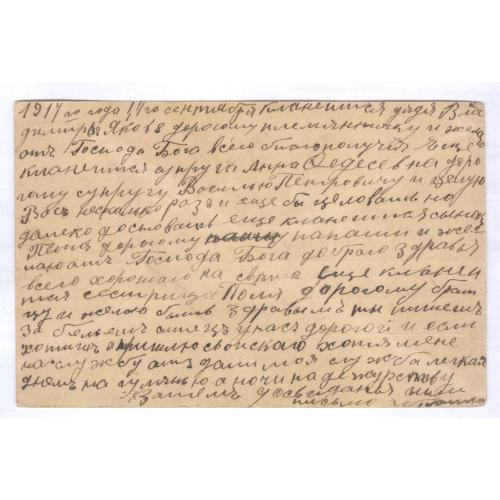 1917 го годо 14го сентября кланеится дядя Вла
димиръ Яковъ дорогому племяннику и жела
отъ Господа Бога всего благополучея Ъ еще
кланеится супруга Анна Федесевна доро
гому супругу Василью Петровичу и целую
Васъ несколько разъ и еще бы целовать но
далеко доставать еще кланеится сыниц
Петя дорогому папаши и же
лаю отъ Господа Бога доброго здравья
всего хорошаго на свете еще кланеи
тся сестрица Поля дорогому брат
цу и желаю быть здравымъ ты пишеш
за бельемъ ситецъ у насъ дорогой и если
хотишъ пришлю свойскаго хотя мене
на службу отдали моя служба легкая
днемъ на гулянью а ночи на дежурству
Затемъ досвиданья
письмо